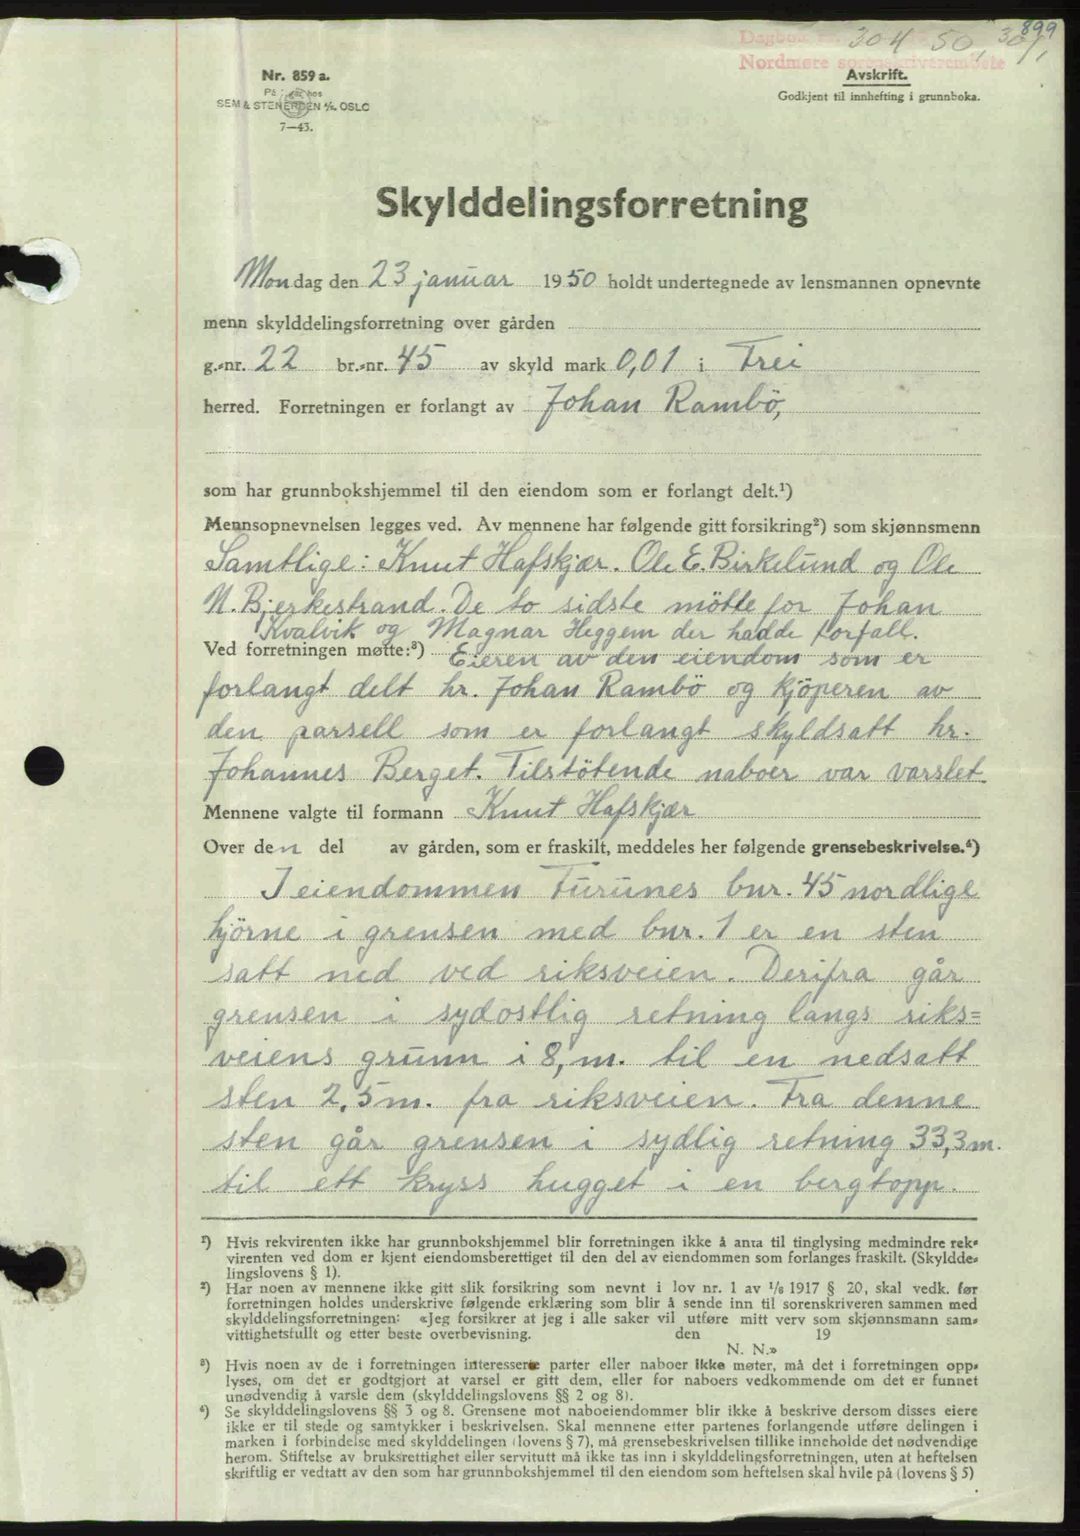 899
Dagbok 304 50, 30/1
Nordmøre sorenskriverembete
Nr. 859 a.
SEM & STENERSEN A/S. OSLO
7—43.
Avskrift.
Godkjent til innhefting i grunnboka.
Skylddelingsforretning
Mondag den 23 januar 1950 holdt undertegnede av lensmannen opnevnte
menn skylddelingsforretning over gården
g.-nr. 22 br.-nr. 45 av skyld mark 0,01 i Frei
herred. Forretningen er forlangt av Johan Rambö,
som har grunnbokshjemmel til den eiendom som er forlangt delt.¹)
Mennsopnevnelsen legges ved. Av mennene har følgende gitt forsikring²) som skjønnsmenn
Samtlige: Knut Hafskjær. Ole E. Birkelund og Ole
N. Bjerkestrand. De to sidste mötte for Johan
Kvalvik og Magnar Heggem der hadde forfall.
Ved forretningen møtte:³) Eieren av den eiendom som er
forlangt delt hr. Johan Rambö og kjöperen av
den parsell som er forlangt skyldsatt hr.
Johannes Berget. Tilstötende naboer var varslet.
Mennene valgte til formann Knut Hafskjær
Over den del av gården, som er fraskilt, meddeles her følgende grensebeskrivelse.⁴)
I eiendommen Furunes bnr. 45 nordlige
hjörne i grensen med bnr. 1 er en sten
satt ned ved riksveien. Derifra går
grensen i sydostlig retning langs riks=
veiens grunn i 8, m. til en nedsatt
sten 2,5 m. fra riksveien. Fra denne
sten går grensen i sydlig retning 33,3 m.
til ett kryss hugget i en bergtopp.
¹) Hvis rekvirenten ikke har grunnbokshjemmel blir forretningen ikke å anta til tinglysing medmindre rek-
virenten ved dom er kjent eiendomsberettiget til den del av eiendommen som forlanges fraskilt. (Skyldde-
lingslovens § 1).
²) Har noen av mennene ikke gitt slik forsikring som nevnt i lov nr. 1 av 1/6 1917 § 20, skal vedk. før
forretningen holdes underskrive følgende erklæring som blir å sende inn til sorenskriveren sammen med
skylddelingsforretningen: «Jeg forsikrer at jeg i alle saker vil utføre mitt verv som skjønnsmann sam-
vittighetsfullt og etter beste overbevisning. den 19
N. N.»
³) Hvis noen av de i forretningen interesserte parter eller naboer ikke møter, må det i forretningen opp-
lyses, om det er godtgjort at varsel er gitt dem, eller for naboers vedkommende om det er funnet
unødvendig å varsle dem (skylddelingslovens §§ 2 og 8).
⁴) Se skylddelingslovens §§ 3 og 8. Grensene mot naboeiendommer blir ikke å beskrive dersom disses eiere
ikke er til stede og samtykker i beskrivelsen. Skal mennene etter partenes forlangende utføre delingen i
marken i forbindelse med skylddelingen (lovens § 7), må grensebeskrivelsen tillike inneholde det nødvendige
herom. Stiftelse av bruksrettighet eller servitutt må ikke tas inn i skylddelingsforretningen, uten at heftelsen
skriftlig er vedtatt av den som har grunnbokshjemmel til den eiendom som heftelsen skal hvile på (lovens § 5)